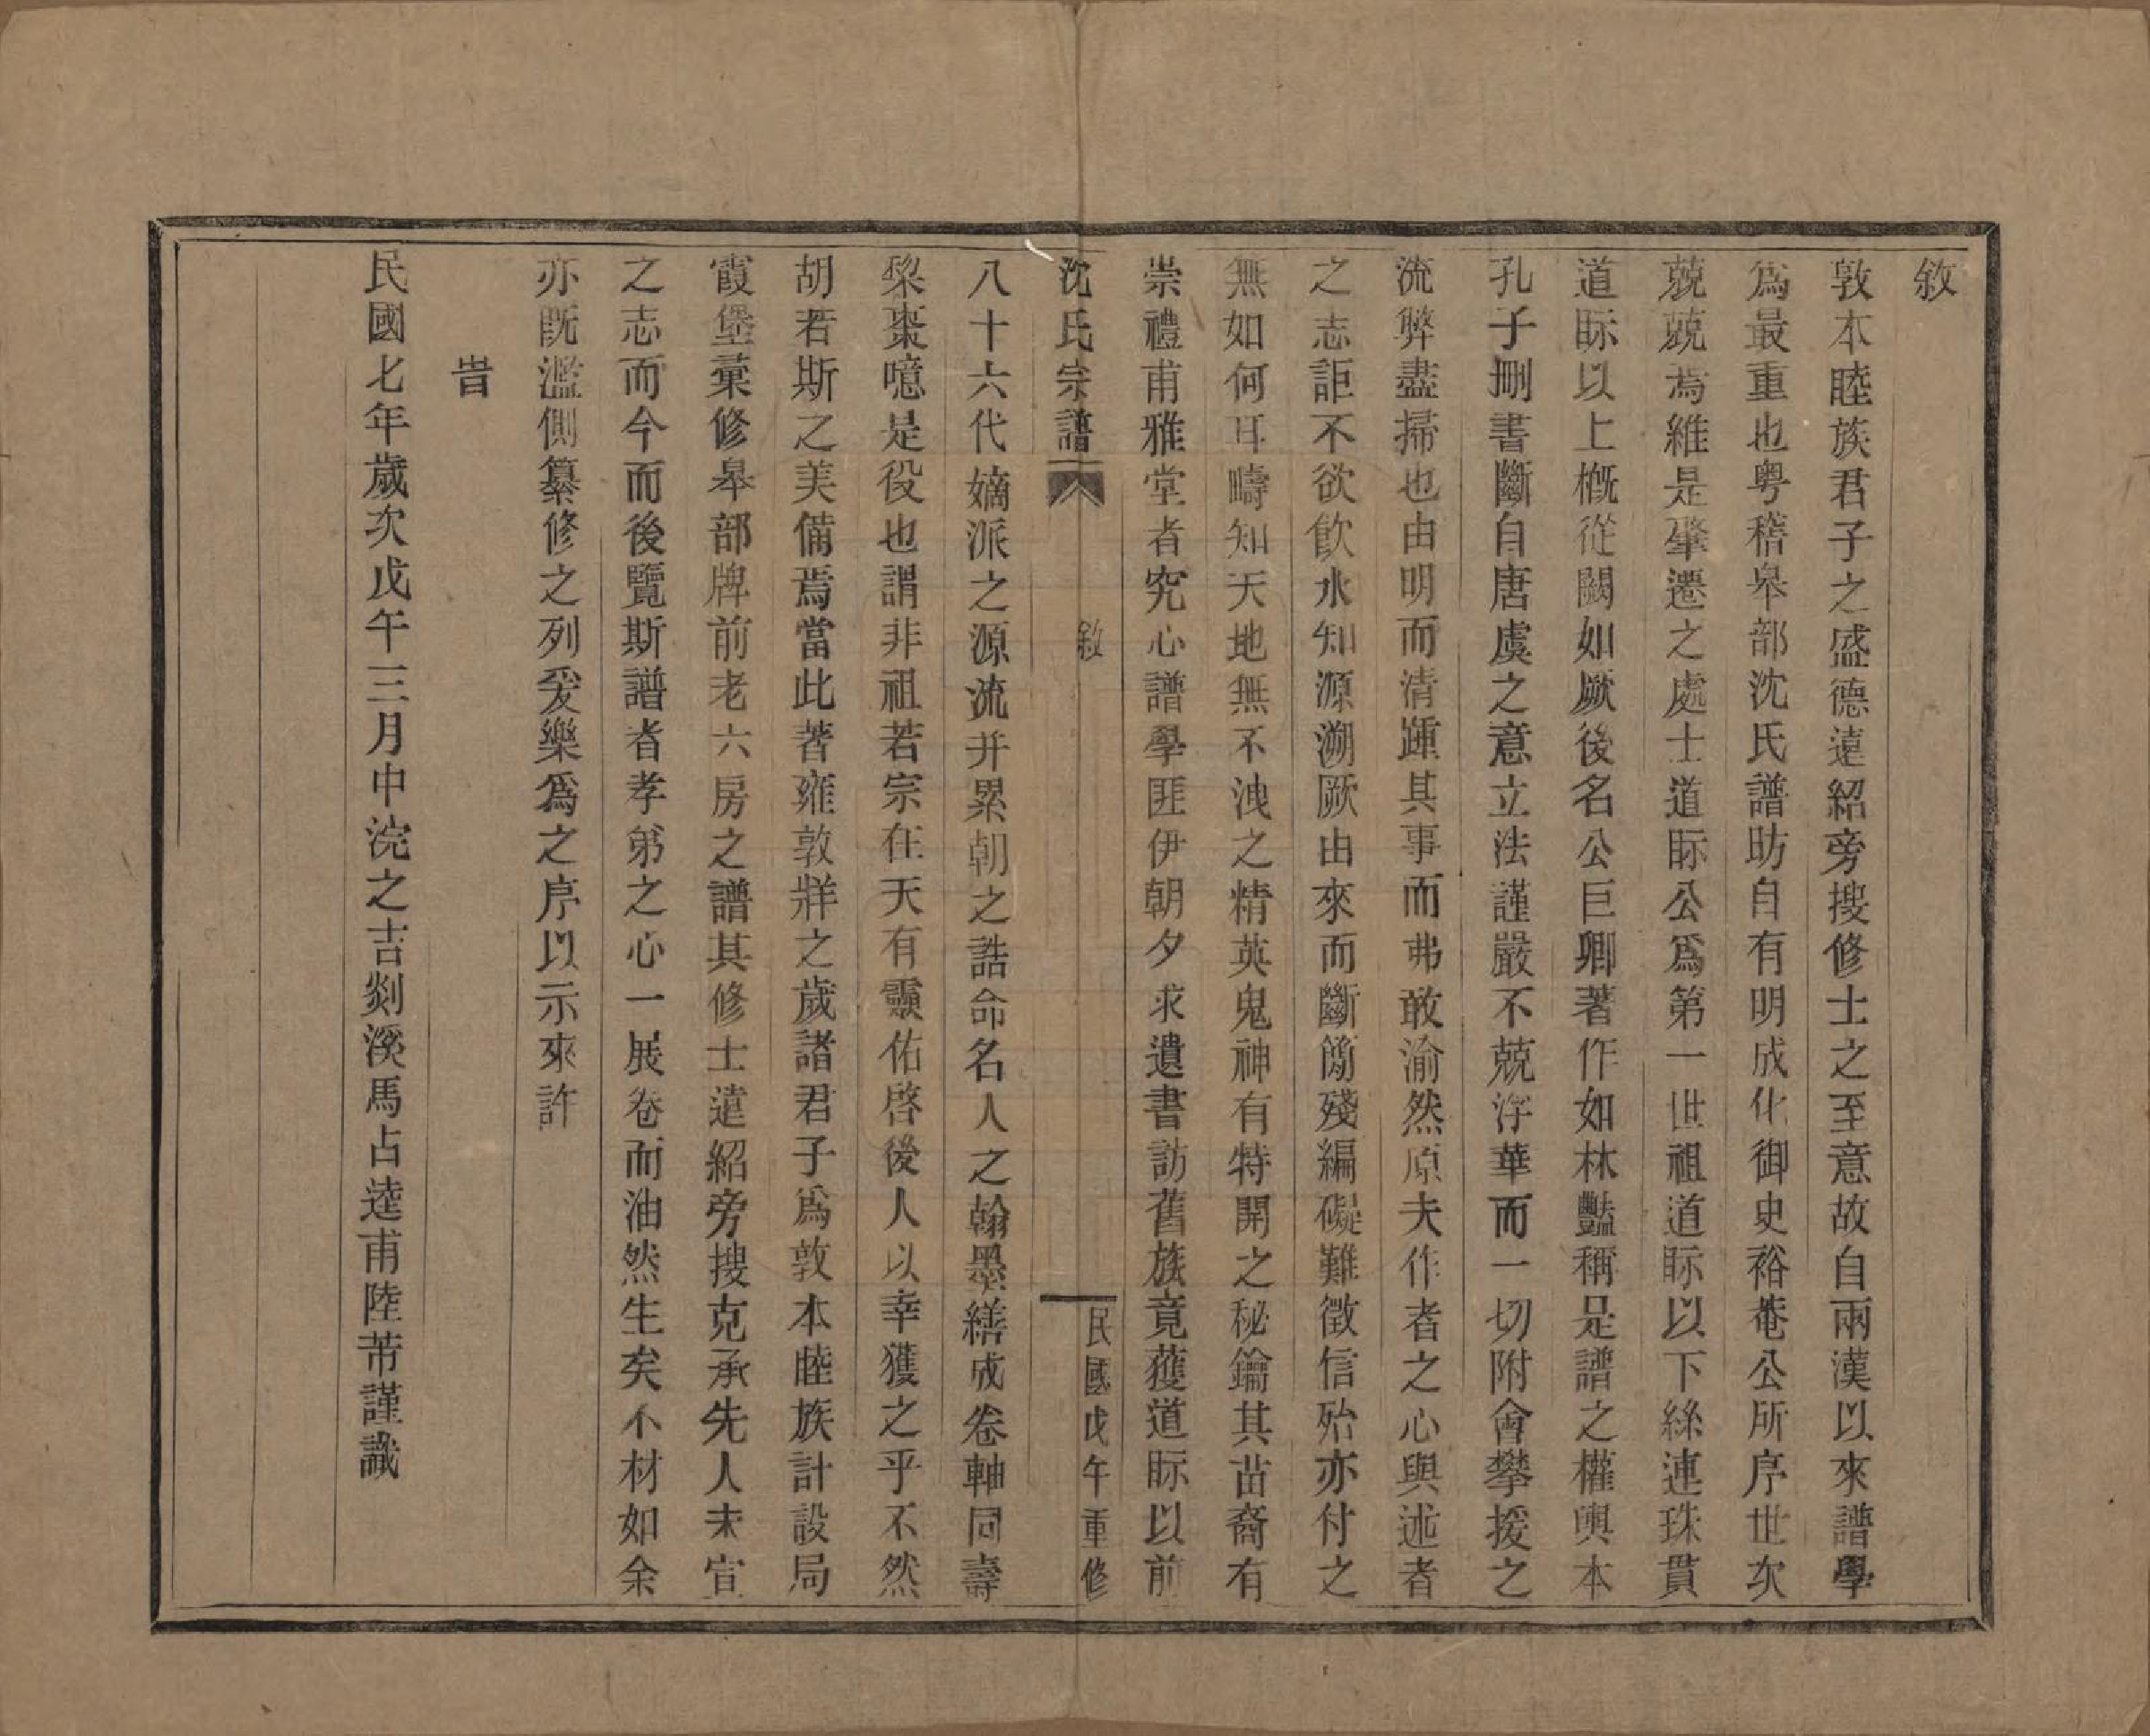 敘
敦本睦族君子之盛德遠紹旁搜修士之至意故自兩漢以來譜學
爲最重也粤稽皋部沈氏譜昉自有明成化御史裕菴公所序世次
兢兢焉維是肇遷之處士道眎公爲第一世祖道眎以下絲連珠貫
道眎以上槪從闕如厥後名公巨卿著作如林豔稱是譜之權輿本
孔子刪書斷自唐虞之意立法謹嚴不兢浮華而一切附會攀援之
流弊盡掃也由明而清踵其事而弗敢渝然原夫作者之心與述者
之志詎不欲飮水知源溯厥由來而斷簡殘編礙難徵信殆亦付之
無如何耳疇知天地無不洩之精英鬼神有特開之秘鑰其苗裔有
崇禮甫雅堂者究心譜學匪伊朝夕求遺書訪舊族竟蒦道眎以前
沈氏宗譜 敘 民國戊午重修
八十六代嫡派之源流并累朝之誥命名人之翰墨繕成卷軸同壽
棃棗噫是役也謂非祖若宗在天有靈佑啓後人以幸獲之乎不然
胡若斯之美備焉當此著雍敦牂之歲諸君子爲敦本睦族計設局
霞堡彙修皋部牌前老六房之譜其修士遠紹旁搜克承先人未宣
之志而今而後覽斯譜者孝弟之心一展卷而油然生矣不材如余
亦旣濫側纂修之列爰樂爲之序以示來許
旹
民國七年歲次戊午三月中浣之吉剡溪馬占逵甫陸芾謹識